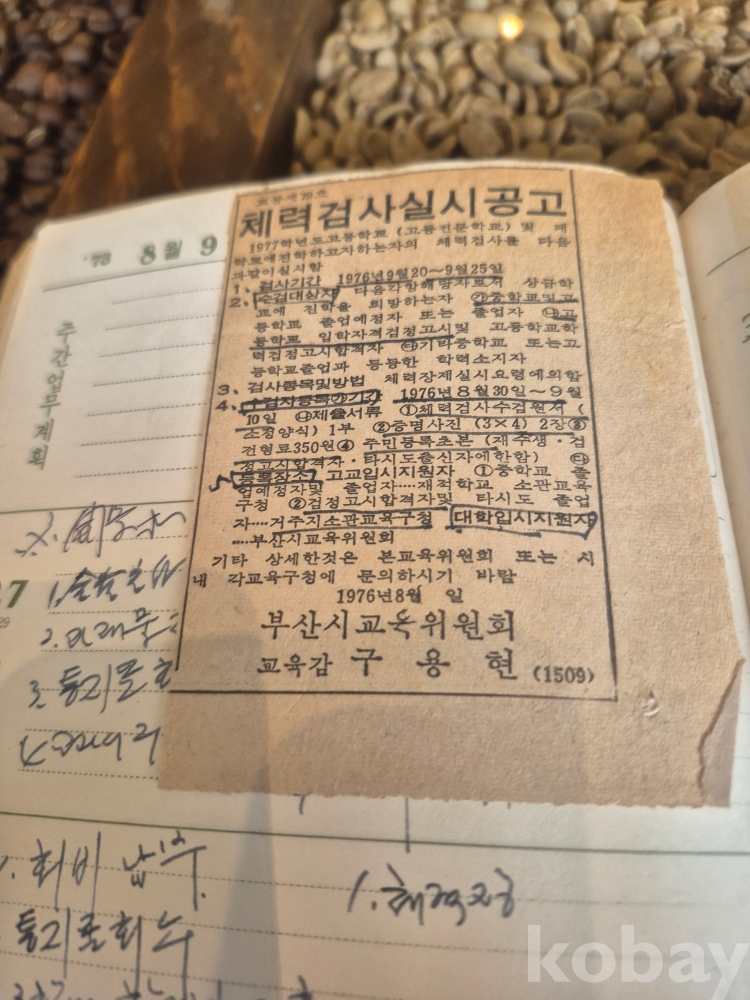 체력검사실시공고
1977학년도고등학교 (고등전문학교) 및 대
학교에진학하고자하는자의 체력검사를 다음
과같이실시함
1、검사기간 1976년9월20~9월25일
2、수검대상자 다음각항해당자로서 상급학
교에 진학을 희망하는자 ㉮중학교및고
등학교 졸업예정자 또는 졸업자 ㉯고
등학교 입학자격검정고시및 고등학교학
력검정고시합격자 ㉰기타중학교 또는고
등학교졸업과 동등한 학력소지자
3、검사종목및방법 체력장제실시요령에의함
4、수검자등록㉮기간 1976년8월30일~9월
10일 ㉯제출서류 ①체력검사수검원서 (
소정양식) 1부 ②증명사진 (3×4) 2장③
전형료350원④ 주민등록초본 (재수생·검
정고시합격자·타시도출신자에한함) ㉰
등록장소 고교입시지원자 ①중학교 졸
업예정자및 졸업자····재적학교 소관교육
구청 ②검정고시합격자및 타시도 졸업
자····거주지소관교육구청 대학입시지원자
····부산시교육위원회
기타 상세한것은 본교육위원회 또는 시
내 각교육구청에 문의하시기 바람
1976년8월 일
부산시교육위원회
교육감 구용현 (1509)
8월 9
주간업무계획
7
회비 납부
1. 체력장
kobay